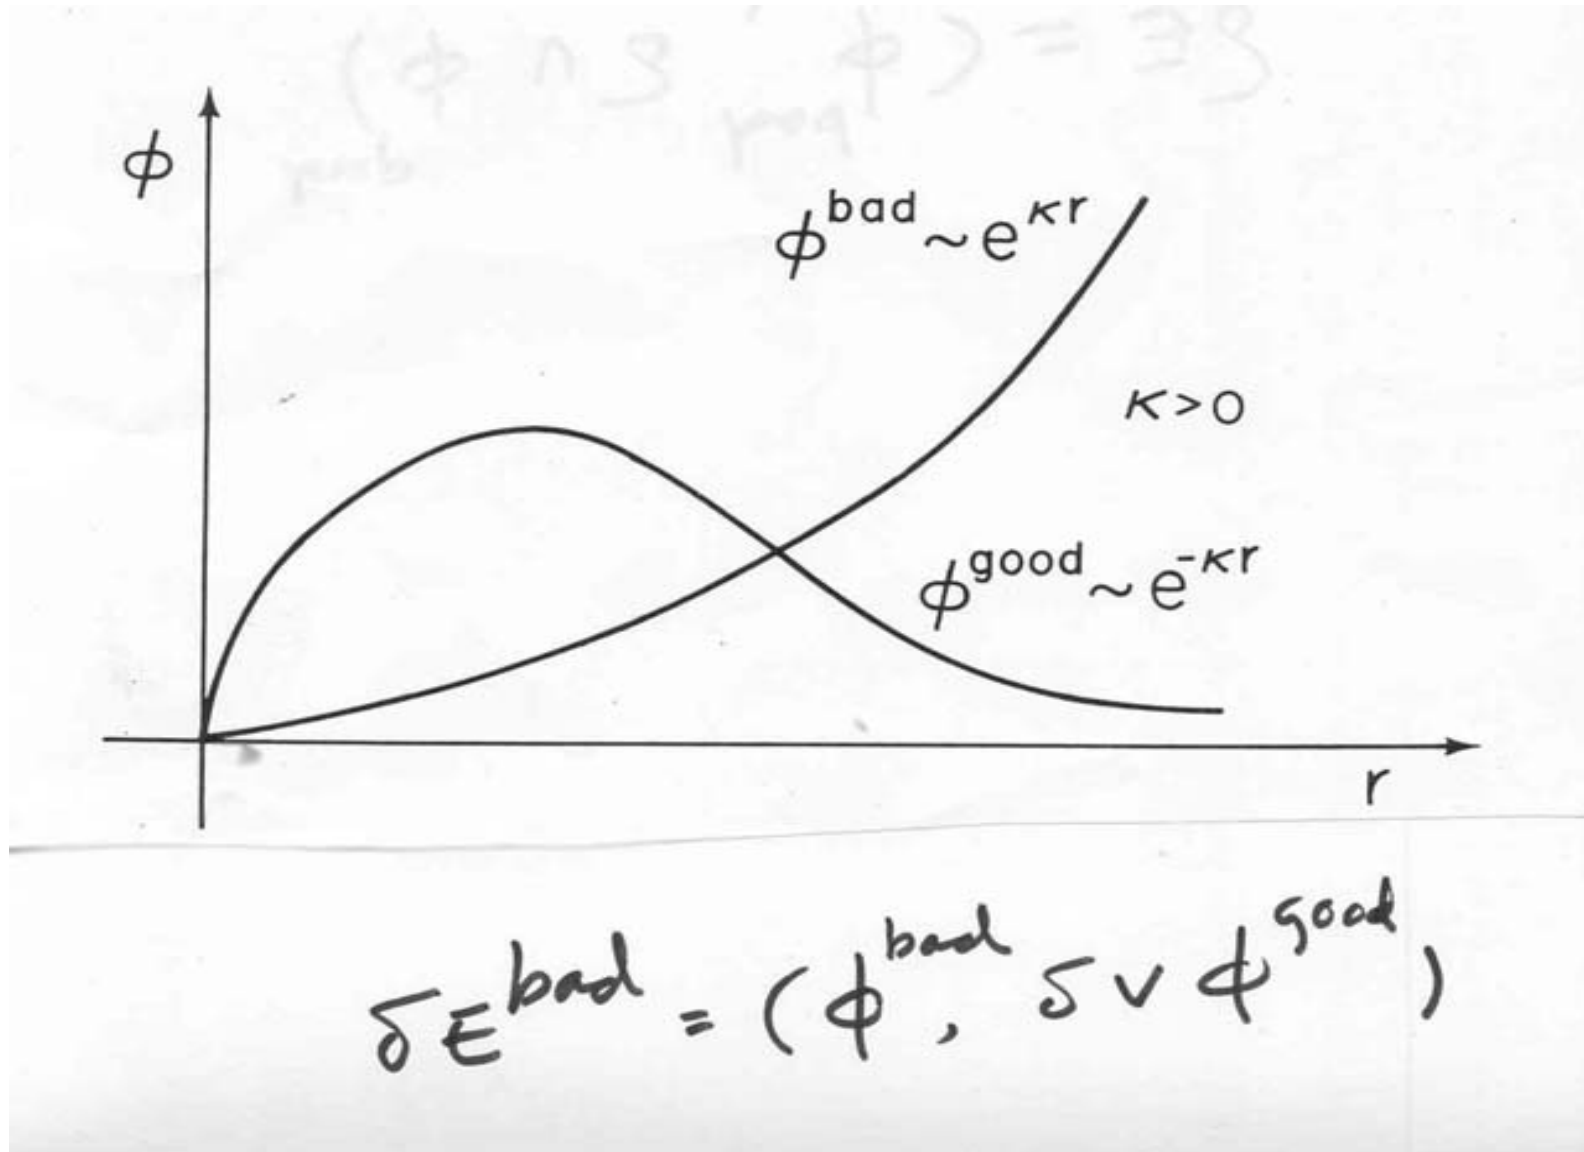 ϕ
ϕ^bad ~ e^κr
κ > 0
ϕ^good ~ e^-κr
r
δE^bad = (ϕ^bad, δv ϕ^good)